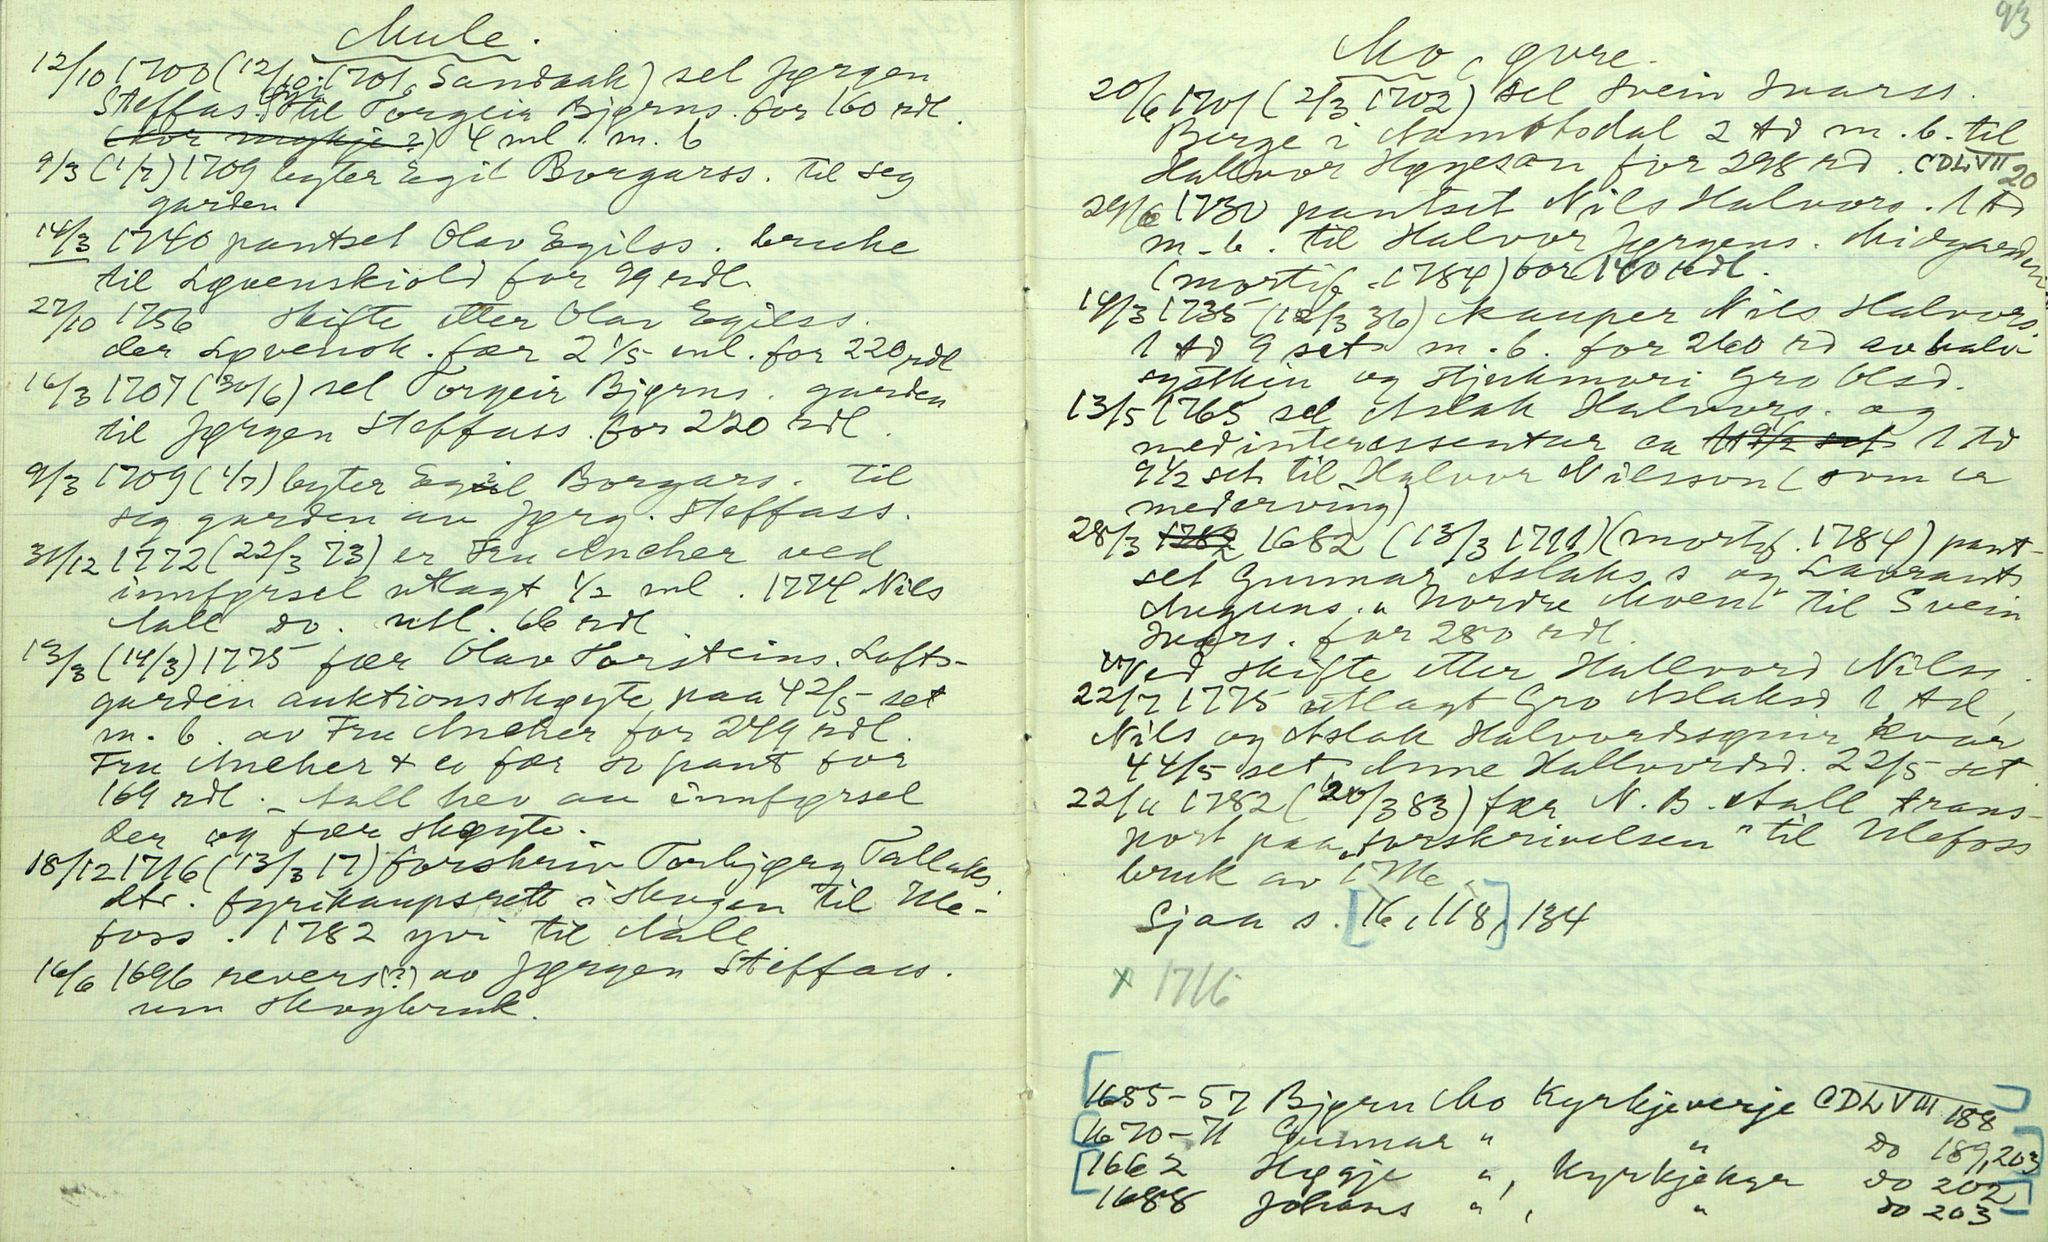 Mule.
12/10 1700 (12/10 1701, Sandaak) sel Jørgen
Steffas. til Torgeir Bjørns. for 160 rdl.
(kor mykje?) 4 ml. m. b
9/3 (1/7) 1709 byter Egil Borgarss. til seg
garden
14/3 1740 pantset Olav Egilss. bruke
til Løvenskiold for 99 rdl.
27/10 1756 skifte etter Olav Egilss.
der Løvensk. fær 2 1/5 ml. for 220 rdl
16/3 1707 (30/6) sel Torgeir Bjørns. garden
til Jørgen Steffass. for 220 rdl.
9/3 1709 (1/7) byter Egil Borgars. til
seg garden av Jørg. Steffass.
31/12 1772 (22/3 73) er Fru Ancher ved
innførsel utlagt 1/2 ml. 1774 Nils
Aall do. utl. 66 rdl
13/3 (14/3) 1775 fær Olav Torsteins. Lofts-
garden auktionsskøyte paa 4 2/5 set
m. b. av Fru Ancher for 249 rdl.
Fru Ancher + co fær so pant for
169 rdl. - Aall hev au innførsel
der og fær skøyte.
18/12 1716 (13/3 17) forskriv Torbjørg Tallaks
dtr. fyrikaupsrett i skogen til Ule-
foss. 1782 yvi til Aall
16/6 1696 revers(?) av Jørgen Steffas.
um skogbruk.
93
Mo, øvre.
20/6 1701 (2/3 1702) sel Svein Ivarss.
Berge i Aamotsdal 2 td m. b. til
Hallvor Høgeson for 298 rd. CDLVII 20
29/6 1730 pantset Nils Halvors. 1 td
m. b. til Halvor Jørgens. Midgarden
(mortif. 1784) for 140 rdl.
14/3 1735 (12/3 36) kauper Nils Halvors.
1 td 9 set m. b. for 260 rd av halv
systkin og stjukmori Gro Olsd.
13/5 1765 sel Aslak Halvors. og
medinteressentar ca 1 td 9 1/2 set 1 td
9 1/2 set til Halvor Nilsson (som er
mederving)
28/3 1782 1682 (13/3 1711) (mortif. 1784) pant-
set Gunnar Aslaks s og Lavrants
Mogens. "Nordre Moen" til Svein
Ivars. for 280 rdl.
Ved skifte etter Hallvord Nilss.
22/7 1775 utlagt Gro Aslaksd 1 td,
Nils og Aslak Halvordssønir kvar
4 4/5 set Anne Hallvordsd. 2 2/5 set
22/11 1782 (20/3 83) fær N. B. Aall trans-
port paa "forskrivelsen" til Ulefoss
bruk av Mo.
Sjaa s. [16, 118], 134
x 1716
[1655-57 Bjørn Mo Kyrkjeverje CDLVIII 188]
[1670-71 Gunnar " " do 189, 203]
[1662 Høgje ", Kyrkjekyr do 202]
1688 Johans ", " do 203